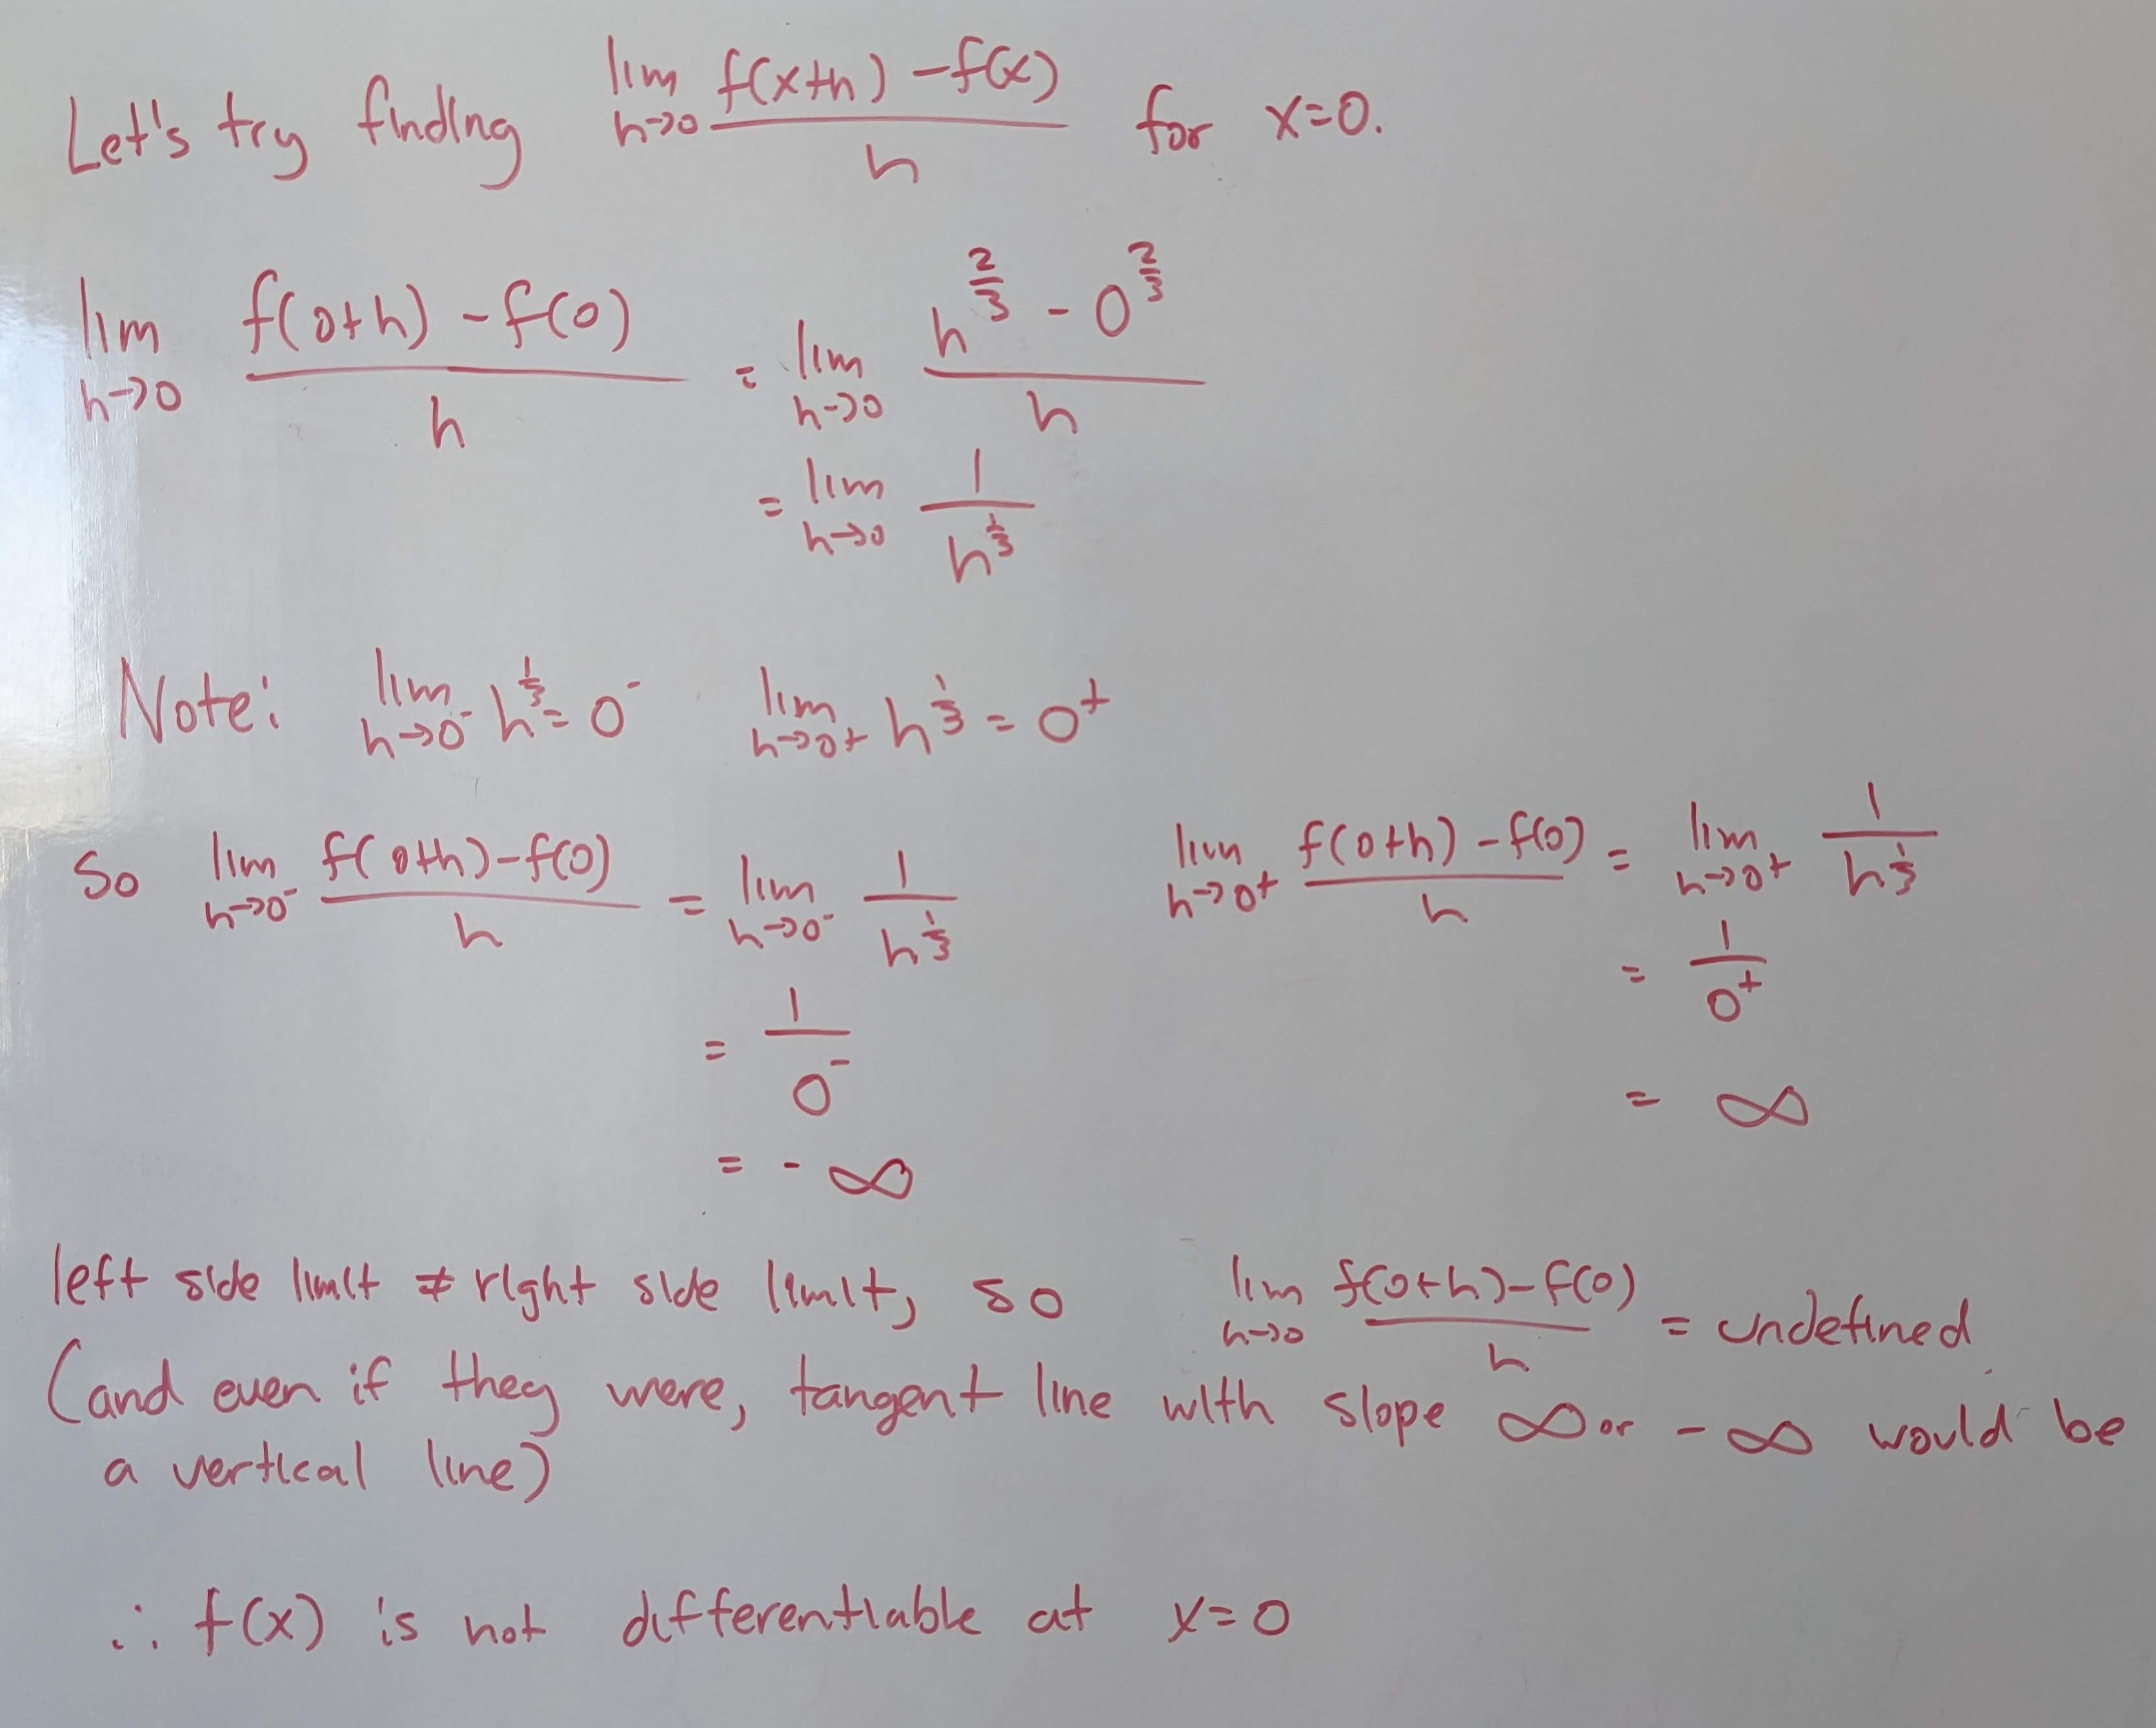 Let's try finding lim h→0 f(x+h) - f(x) / h for x=0.
lim h→0 f(0+h) - f(0) / h = lim h→0 h^(2/3) - 0^(2/3) / h
= lim h→0 1 / h^(1/3)
Note: lim h→0⁻ h^(1/3) = 0⁻ lim h→0⁺ h^(1/3) = 0⁺
So lim h→0⁻ f(0+h) - f(0) / h = lim h→0⁻ 1 / h^(1/3)
= 1 / 0⁻
= -∞
lim h→0⁺ f(0+h) - f(0) / h = lim h→0⁺ 1 / h^(1/3)
= 1 / 0⁺
= ∞
left side limit ≠ right side limit, so lim h→0 f(0+h) - f(0) / h = undefined.
(and even if they were, tangent line with slope ∞ or -∞ would be
a vertical line)
∴ f(x) is not differentiable at x=0